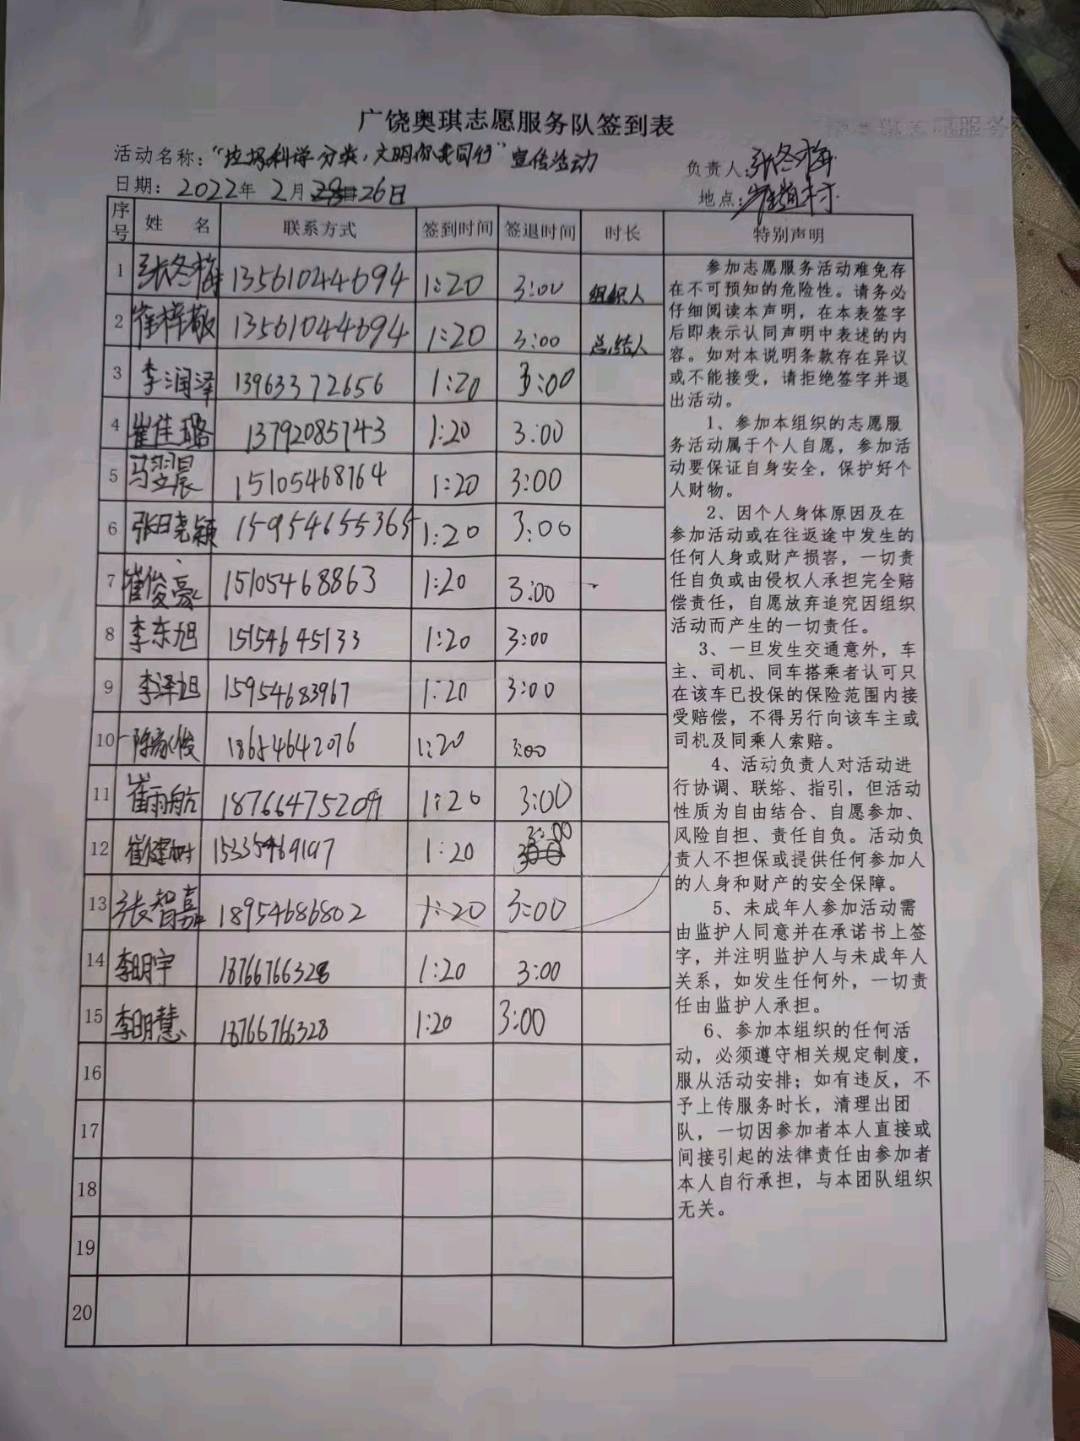 广饶奥琪志愿服务队签到表
活动名称："垃圾科学分类，文明你我同行"宣传活动
负责人：张冬梅
日期：2022年2月26日
地点：
序号 姓名 联系方式 签到时间 签退时间 时长 特别声明
1 张冬梅 13561044694 1:20 3:00 组织人
2 崔梓敬 13561044694 1:20 3:00 总结人
3 李润泽 13963372656 1:20 3:00
4 崔佳璐 13792085743 1:20 3:00
5 马翌晨 15105468764 1:20 3:00
6 张晓颖 15954655365 1:20 3:00
7 崔俊豪 15105468863 1:20 3:00
8 李东旭 15154645133 1:20 3:00
9 李泽旭 15954683967 1:20 3:00
10 陈家俊 18654642076 1:20 3:00
11 崔雨航 18766475209 1:20 3:00
12 崔建树 15335469197 1:20 3:00
13 张智嘉 18954686802 1:20 3:00
14 李明宇 18766766328 1:20 3:00
15 李明慧 18766766328 1:20 3:00
16
17
18
19
20
参加志愿服务活动难免存
在不可预知的危险性。请务必
仔细阅读本声明，在本表签字
后即表示认同声明中表述的内
容。如对本说明条款存在异议
或不能接受，请拒绝签字并退
出活动。
1、参加本组织的志愿服
务活动属于个人自愿，参加活
动要保证自身安全，保护好个
人财物。
2、因个人身体原因及在
参加活动或在往返途中发生的
任何人身或财产损容，一切责
任自负或由侵权人承担完全赔
偿责任，自愿放弃追究因组织
活动而产生的一切责任。
3、一旦发生交通意外，车
主、司机、同车搭乘者认可只
在该车已投保的保险范围内接
受赔偿，不得另行向该车主或
司机及同乘人索赔。
4、活动负责人对活动进
行协调、联络、指引，但活动
性质为自由结合、自愿参加、
风险自担、责任自负。活动负
责人不担保或提供任何参加人
的人身和财产的安全保障。
5、未成年人参加活动需
由监护人同意并在承诺书上签
字，并注明监护人与未成年人
关系，如发生任何外，一切责
任由监护人承担。
6、参加本组织的任何活
动，必须遵守相关规定制度，
服从活动安排；如有违反，不
予上传服务时长，清理出团
队，一切因参加者本人直接或
间接引起的法律责任由参加者
本人自行承担，与本团队组织
无关。